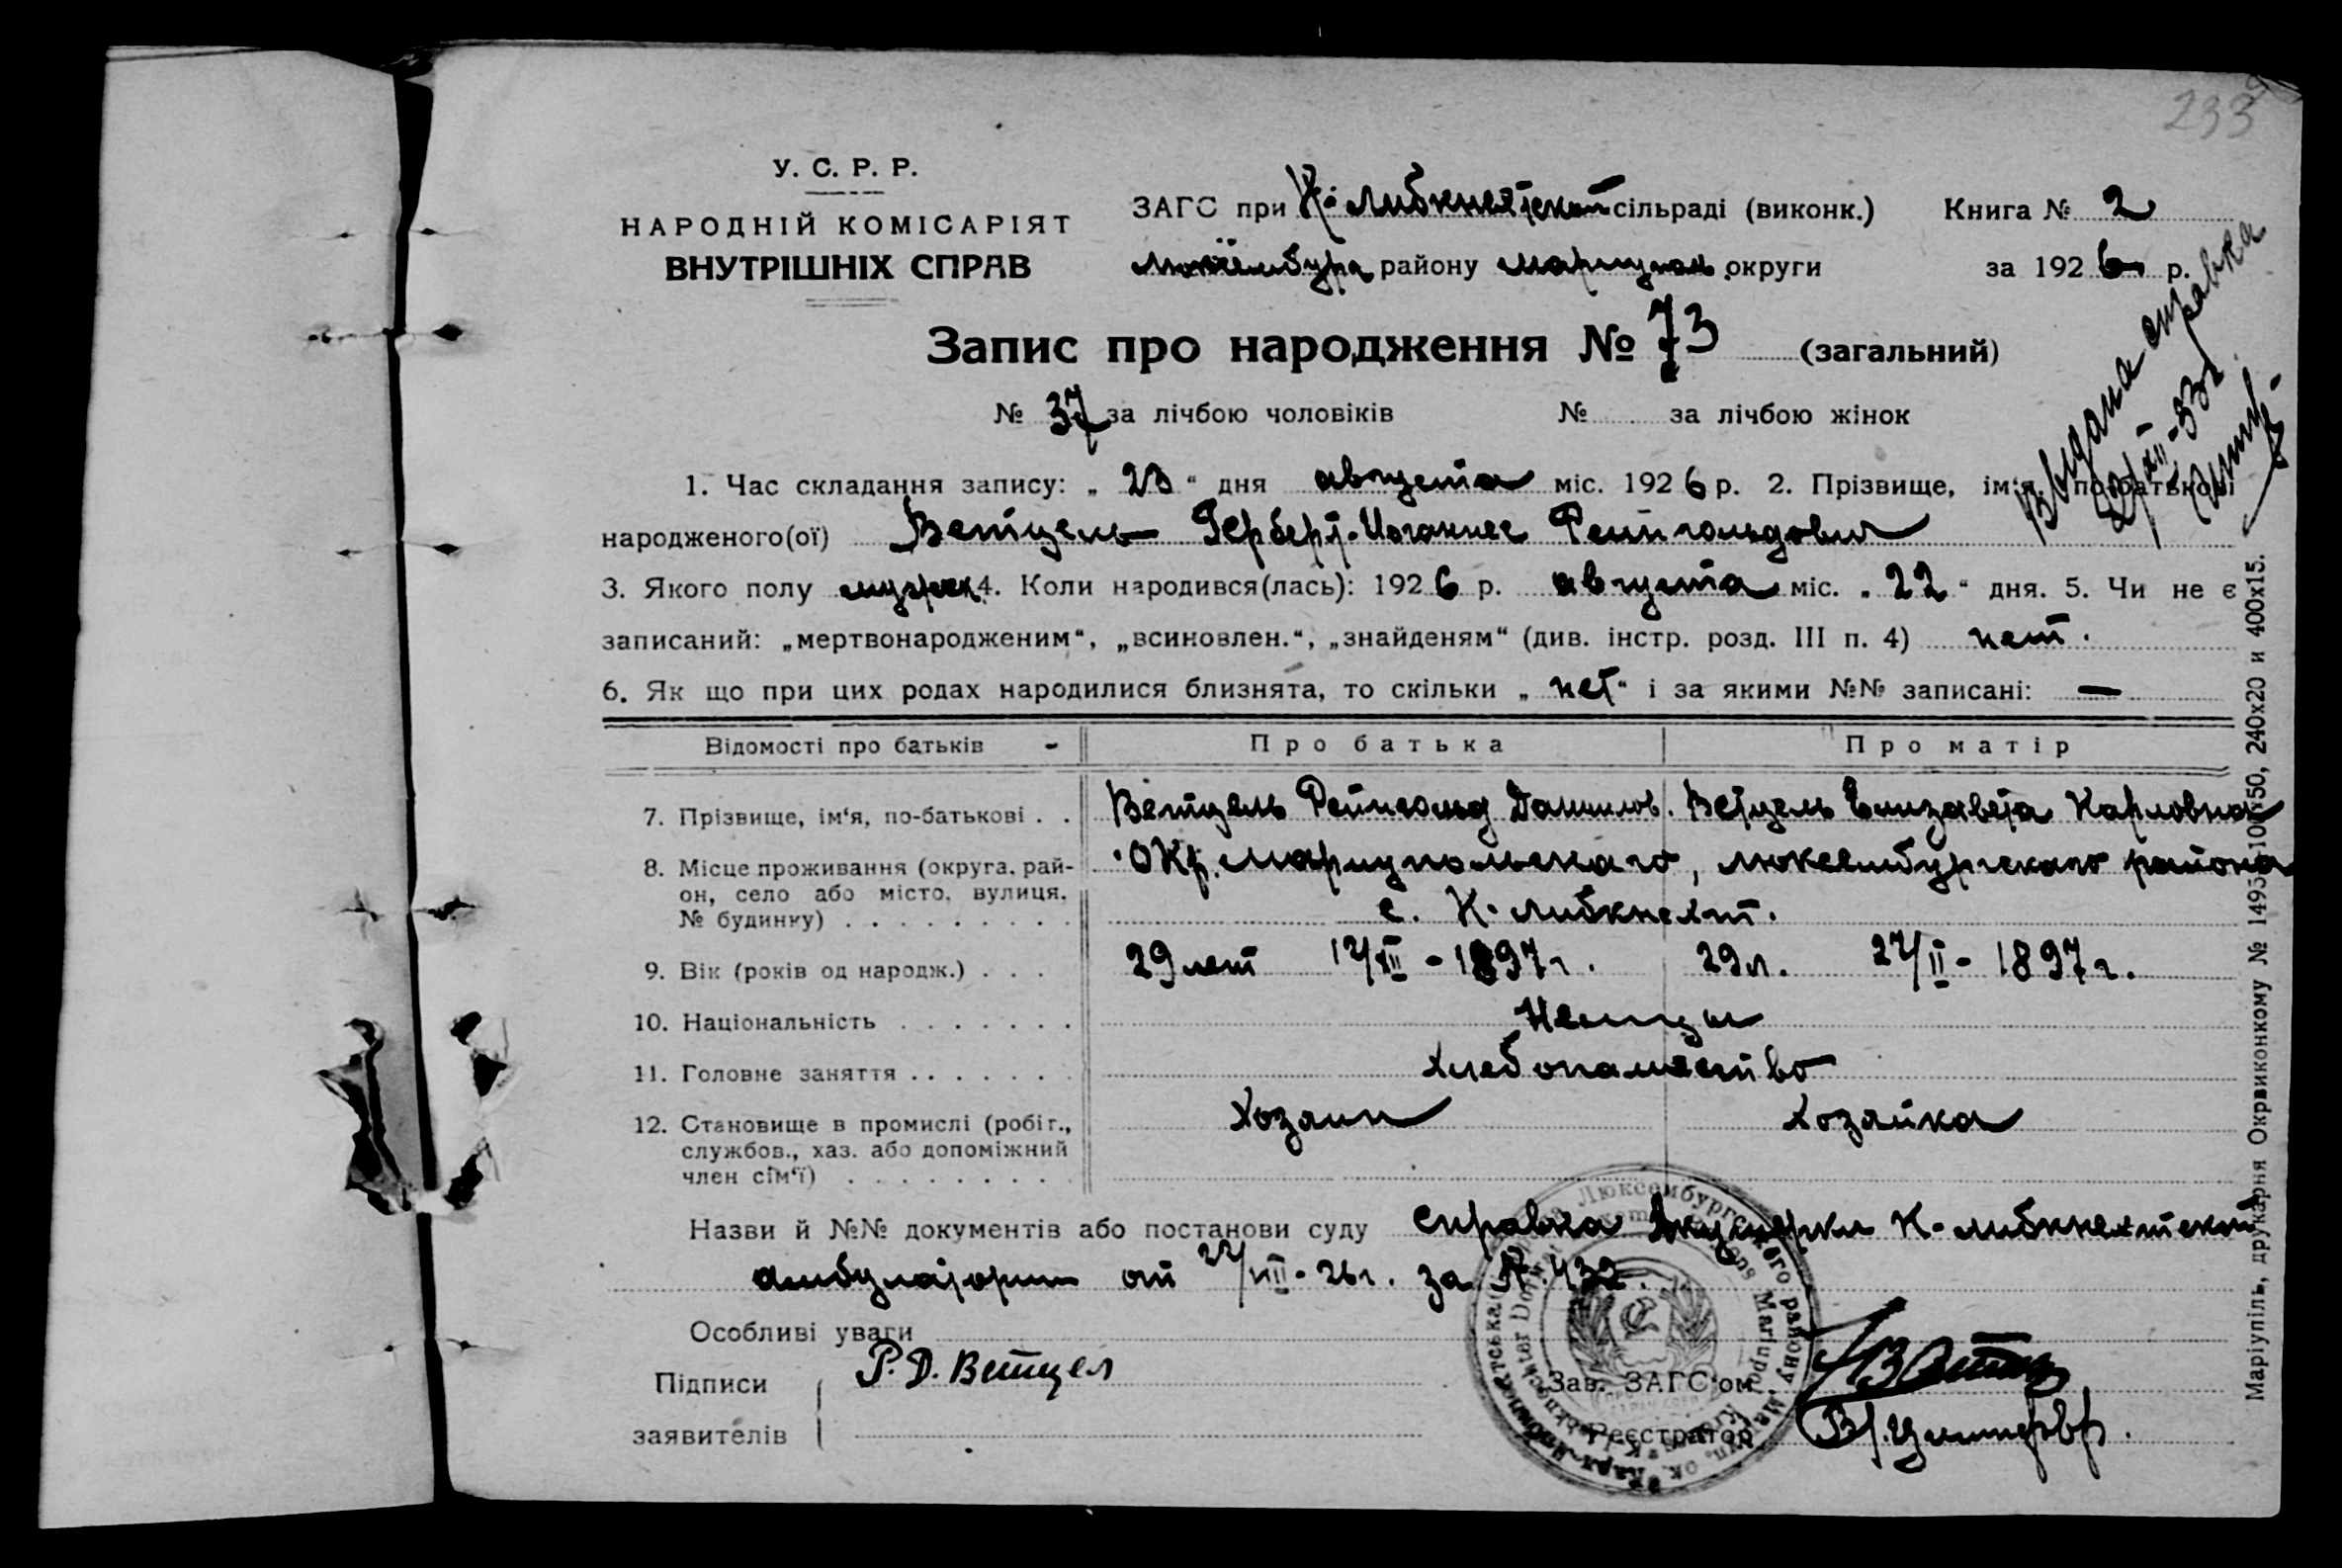 233
У. С. Р. Р.
НАРОДНІЙ КОМІСАРІЯТ
ВНУТРІШНІХ СПРАВ
ЗАГС при К. Либкнехтской сільраді (виконк.) Книга № 2
Люксембург району Мариупол округи за 1926 р.
Запис про народження № 73 (загальний)
№ 37 за лічбою чоловіків № за лічбою жінок
Выдана справка
1. Час складання запису: „ 23 “ дня августа міс. 1926 р. 2. Прізвище, ім‘я, по-батькові
народженого(ої) Ветцель Герберт-Иоганнес Рейнгольдович
3. Якого полу мужск 4. Коли народився(лась): 1926 р. августа міс. „ 22 “ дня. 5. Чи не є
записаний: „мертвонародженим“, „всиновлен.“, „знайденям“ (див. інстр. розд. III п. 4) нет.
6. Як що при цих родах народилися близнята, то скільки „ нет “ і за якими №№ записані: —
Відомості про батьків - Про батька Про матір
7. Прізвище, ім‘я, по-батькові . . Ветцель Рейнгольд Данилов. Ветцель Елизавета Карловна
8. Місце проживання (округа, рай-
он, село або місто, вулиця,
№ будинку) . . . . . . . . .
Окр. Мариупольского, Люксембургского района
с. К. Либкнехт.
9. Вік (років од народж.) . . . 29 лет 12/XII - 1897 г. 29 л. 27/II - 1897 г.
10. Національність . . . . . . . Немцы
11. Головне заняття . . . . . . Хлебопашество
12. Становище в промислі (робіт.,
службов., хаз. або допоміжний
член сім‘ї) . . . . . . . . .
Хозяин Хозяйка
Назви й №№ документів або постанови суду Справка Акушерки К. Либкнехтской
амбулатории от 22/VIII - 26 г. за № 432.
Особливі уваги
Підписи
заявителів
Р. Д. Ветцел
Зав. ЗАГС‘ом
Реєстратор
Маріупіль, друкарня Окрвиконкому № 1495 240х20 и 400х15.